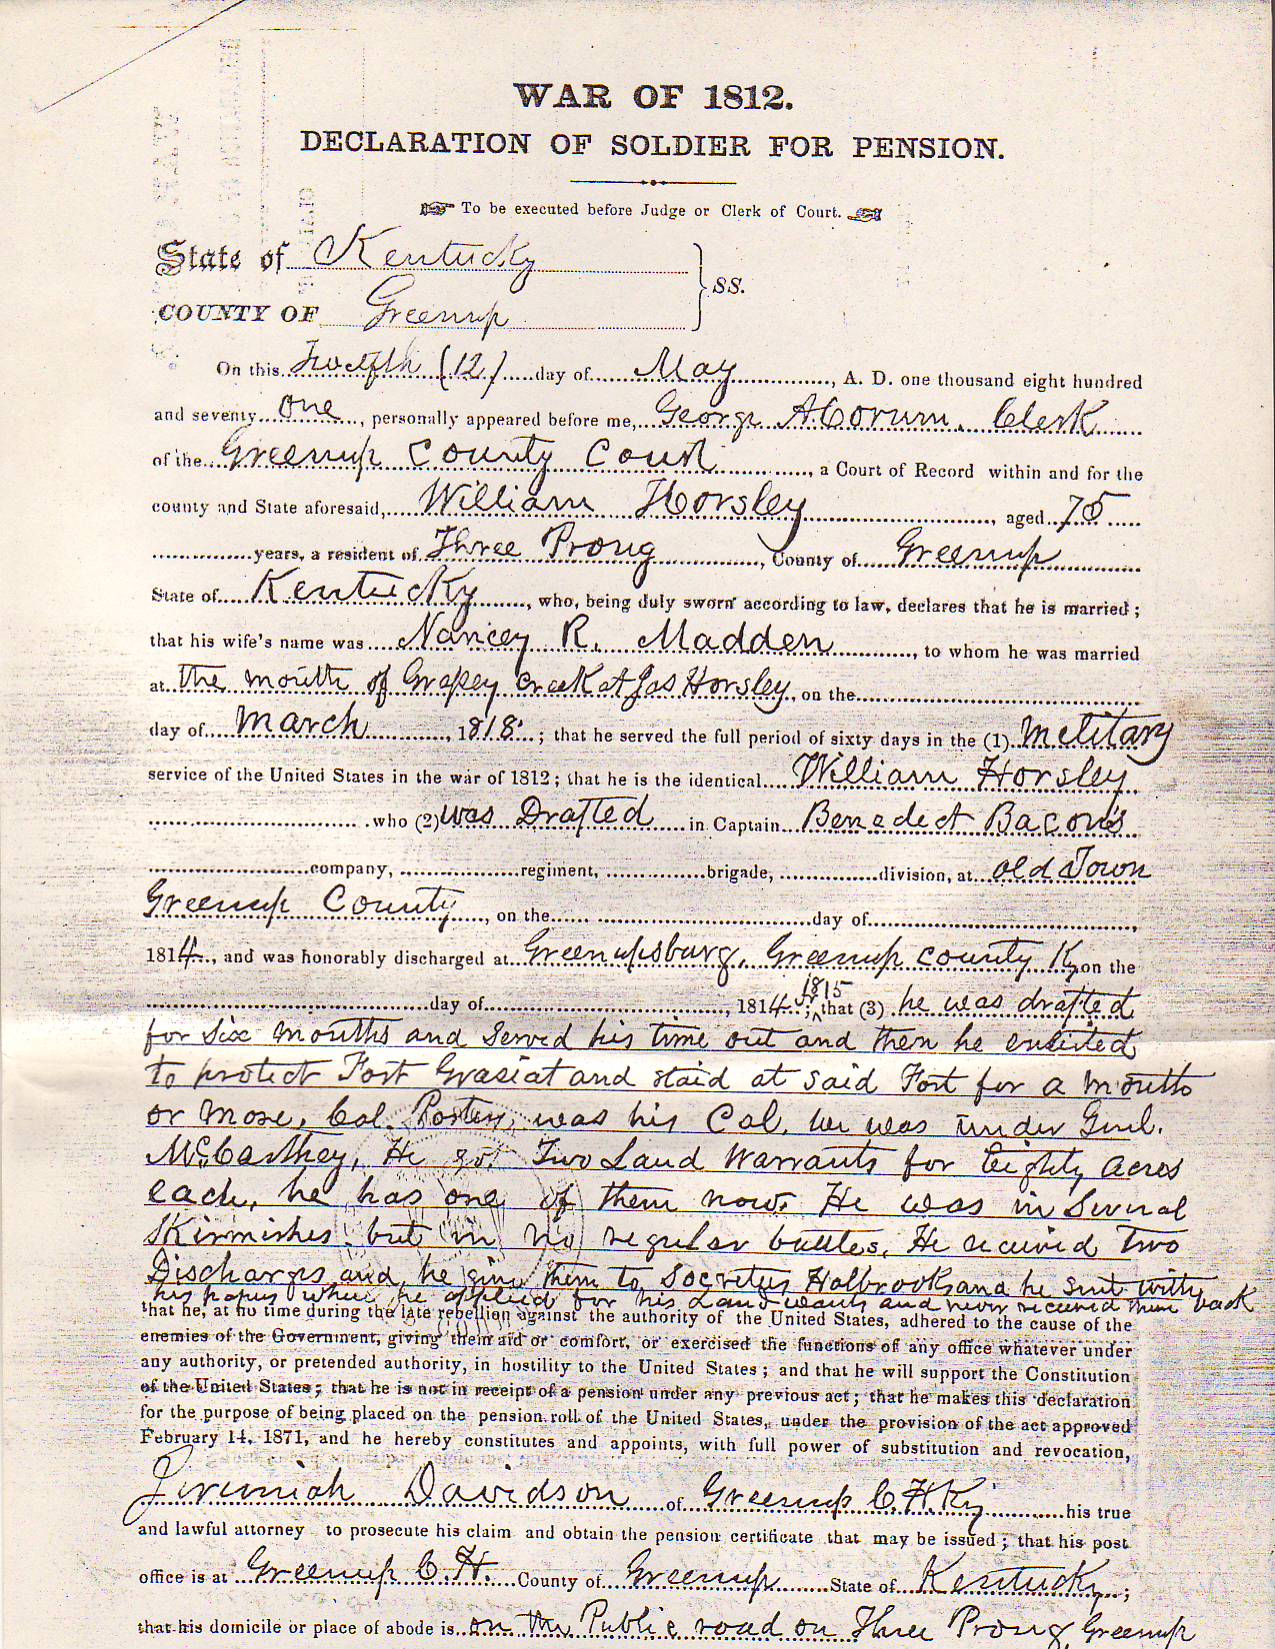 WAR OF 1812.
DECLARATION OF SOLDIER FOR PENSION.
To be executed before Judge or Clerk of Court.
State of Kentucky
COUNTY OF Greenup
} SS.
On this Twelfth (12) day of May, A. D. one thousand eight hundred
and seventy one, personally appeared before me, George A Corum. Clerk
of the Greenup County Court, a Court of Record within and for the
county and State aforesaid, William Horsley, aged 75
years, a resident of Three Prong, County of Greenup
State of Kentucky, who, being duly sworn according to law, declares that he is married;
that his wife's name was Nancey R. Madden, to whom he was married
at the mouth of Grapey creek at Jas Horsley, on the
day of March, 1818; that he served the full period of sixty days in the (1) Melitary
service of the United States in the war of 1812; that he is the identical William Horsley
who (2) was Drafted in Captain Benedict Bacon's
company, regiment, brigade, division, at old Town
Greenup County, on the day of
1814, and was honorably discharged at Greenupsburg, Greenup county Ky on the
day of , 1814 1815; that (3) he was drafted
for six months and served his time out and then he enlisted
to protect Fort Grasiat and staid at said Fort for a month
or more, Col. Porter, was his Col, he was under Genl.
McCarthey, He got Two Land Warrants for Eighty acres
each, he has one of them now. He was in Several
Skirmishes but in no regular battles. He received Two
Discharges and he give them to Socretus Holbrook and he sent with
his papers when he applied for his Land and never received them back
that he, at no time during the late rebellion against the authority of the United States, adhered to the cause of the
enemies of the Government, giving them aid or comfort, or exercised the functions of any office whatever under
any authority, or pretended authority, in hostility to the United States; and that he will support the Constitution
of the United States; that he is not in receipt of a pension under any previous act; that he makes this declaration
for the purpose of being placed on the pension roll of the United States, under the provision of the act approved
February 14, 1871, and he hereby constitutes and appoints, with full power of substitution and revocation,
Jeremiah Davidson of Greenup C.H. Ky his true
and lawful attorney to prosecute his claim and obtain the pension certificate that may be issued; that his post
office is at Greenup C.H. County of Greenup State of Kentucky;
that his domicile or place of abode is on the Public road on Three Prong Greenup